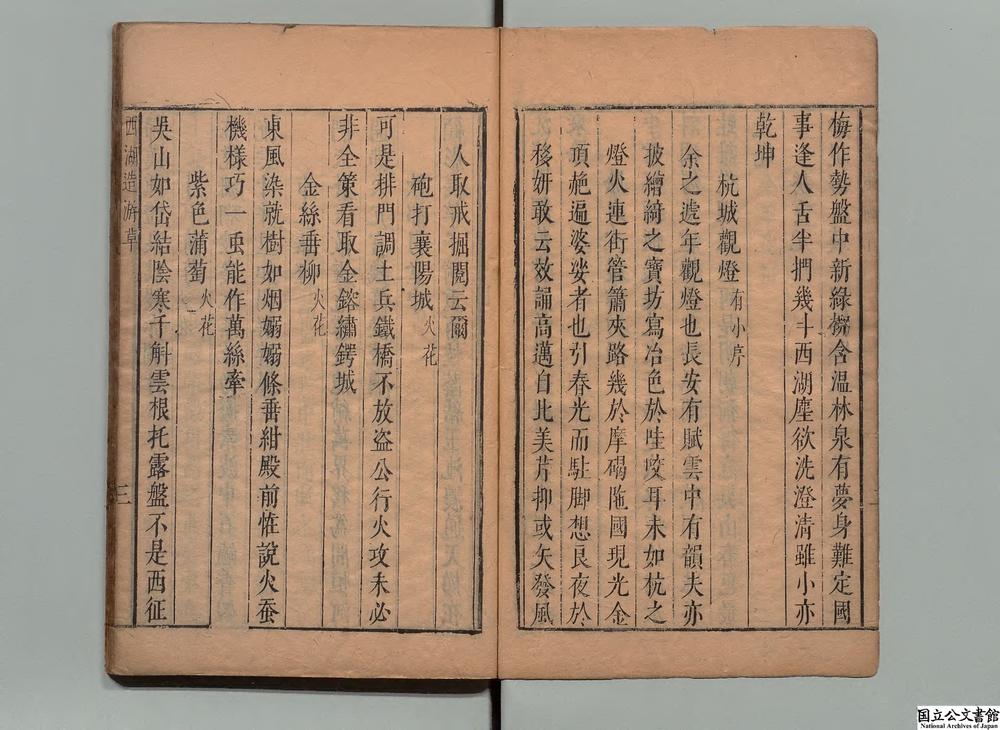 梅作勢盤中新綠㭊含溫林泉有夢身難定國
事逢人舌半捫幾斗西湖塵欲洗澄清雖小亦
乾坤
杭城觀燈有小序
余之遽年觀燈也長安有賦雲中有韻夫亦
披繪綺之寶坊寫冶色於哇咬耳未如杭之
燈火連街管簫夾路幾於摩碣陁國現光金
頂赩遍婆娑者也引春光而駐脚想良夜於
移妍敢云效誦高邁自比美芹抑或矢發風
人取戒掘閱云爾
砲打襄陽城火花
可是排門調土兵鐵橋不放盜公行火攻未必
非全策看取金鎔繡鍔城
金絲垂柳火花
東風染就樹如烟嫋嫋條垂紺殿前惟說火蚕
機樣巧一䖝能作萬絲牽
紫色蒲萄火花
吳山如岱結陰寒千斛雲根托露盤不是西征
西湖造游草
三
国立公文書館
National Archives of Japan